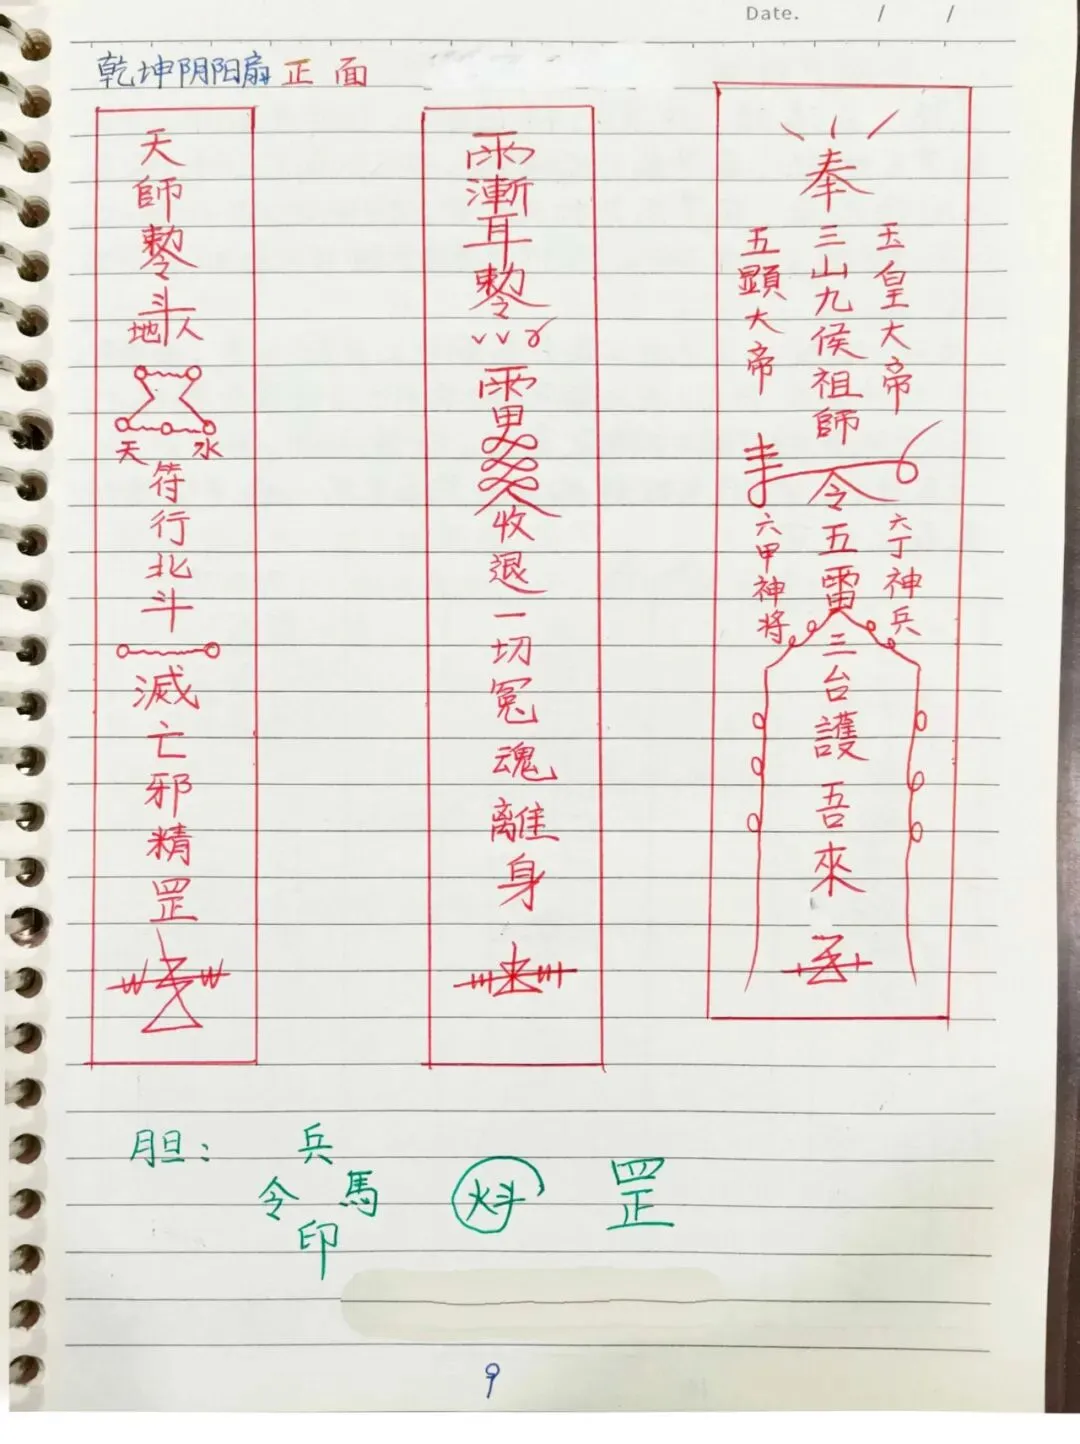 Date. / /
乾坤阴阳扇 正面
天師敕令
斗
地 人
天 水
符行北斗
滅亡邪精罡
雨漸耳敕令
收退一切冤魂離身
奉
玉皇大帝
三山九侯祖師
五顯大帝
令五雷
六丁神兵
六甲神将
三台護吾來
胆：
兵
令 馬
印
火斗
罡
9